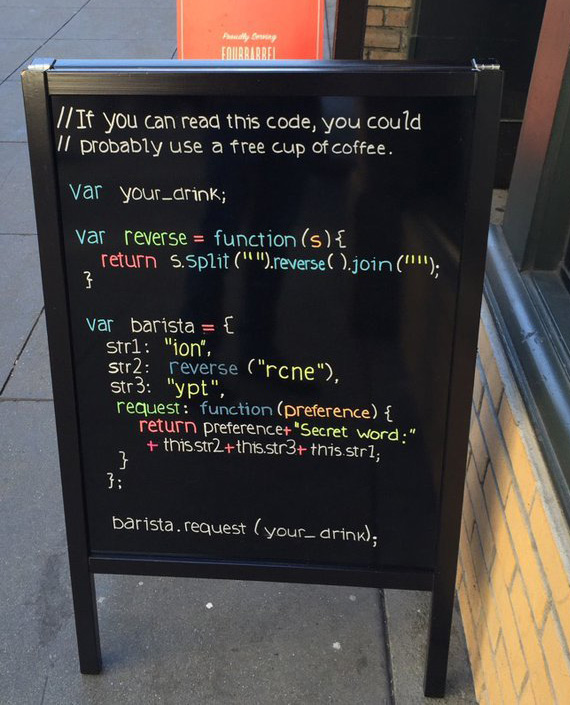 Proudly Serving
FOURBARREL
//If you can read this code, you could
// probably use a free cup of coffee.
var your_drink;
var reverse = function(s){
return s.split("").reverse( ).join("");
}
var barista = {
str1: "ion",
str2: reverse ("rcne"),
str3: "ypt",
request: function(preference) {
return preference+"Secret word:"
+ this.str2+this.str3+ this.str1;
}
};
barista.request (your_drink);